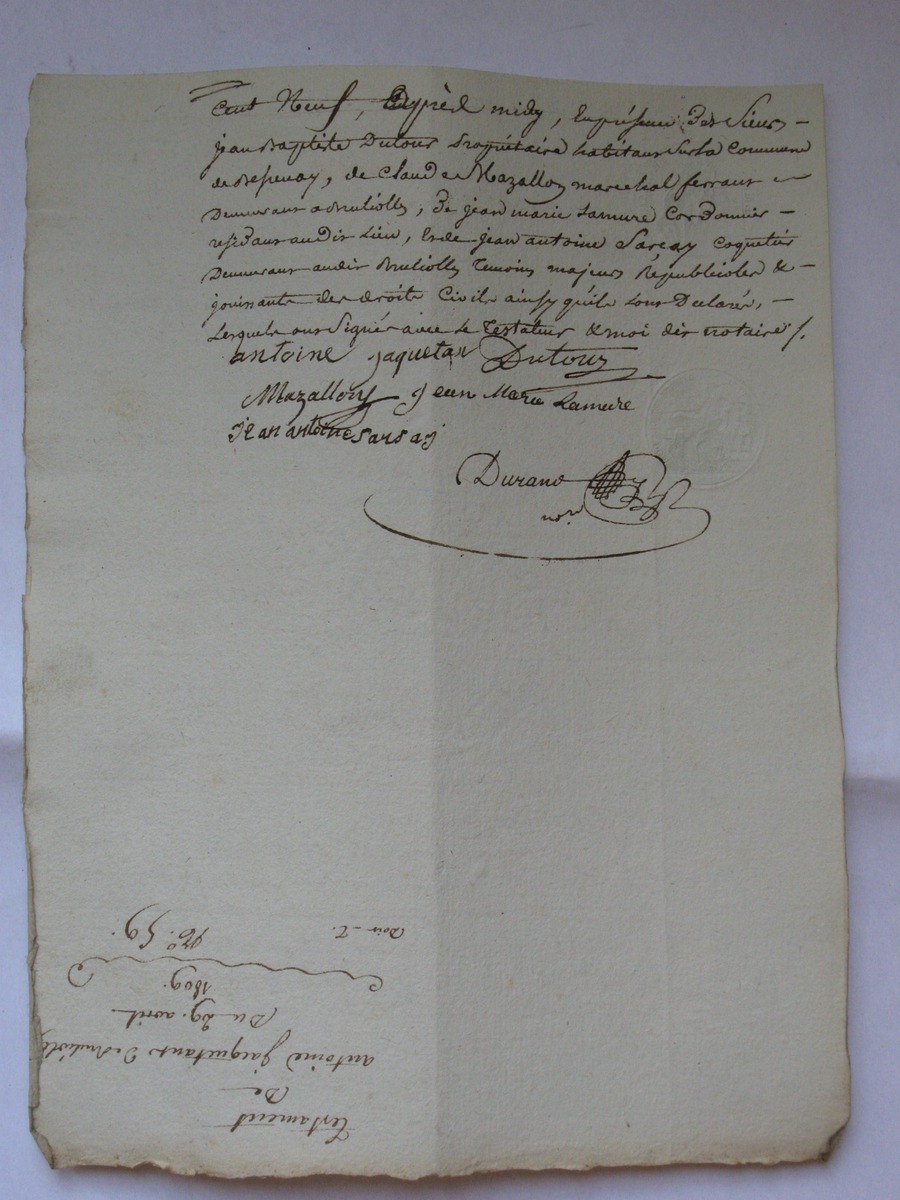 Cent Neuf, Et après midy, En présence des Sieurs -
jean Baptiste Dutour propriétaire habitant sur la Commune
de Besnay, de Claude Mazallon marechal ferrant -
Demeurant a Bruliolle, De jean marie Lamure Cordonnier -
résidant audit Lieu, Et de jean antoine Sarsay Coquetier
Demeurant audit Brulliolle, temoins majeurs Républicoles & -
jouissants des droits Civils ainsy qu'ils l'ont Declaré, -
Lesquels ont Signé avec Le Testateur & moi dit notaire /.
antoine jaquetan Dutour
Mazallon Jean Marie Lamure
Jean antoine sarsaÿ
Durand
nore
Testament
De
antoine Jacquetant De Brulliole
Du 29. avril
1809.
No. 59.